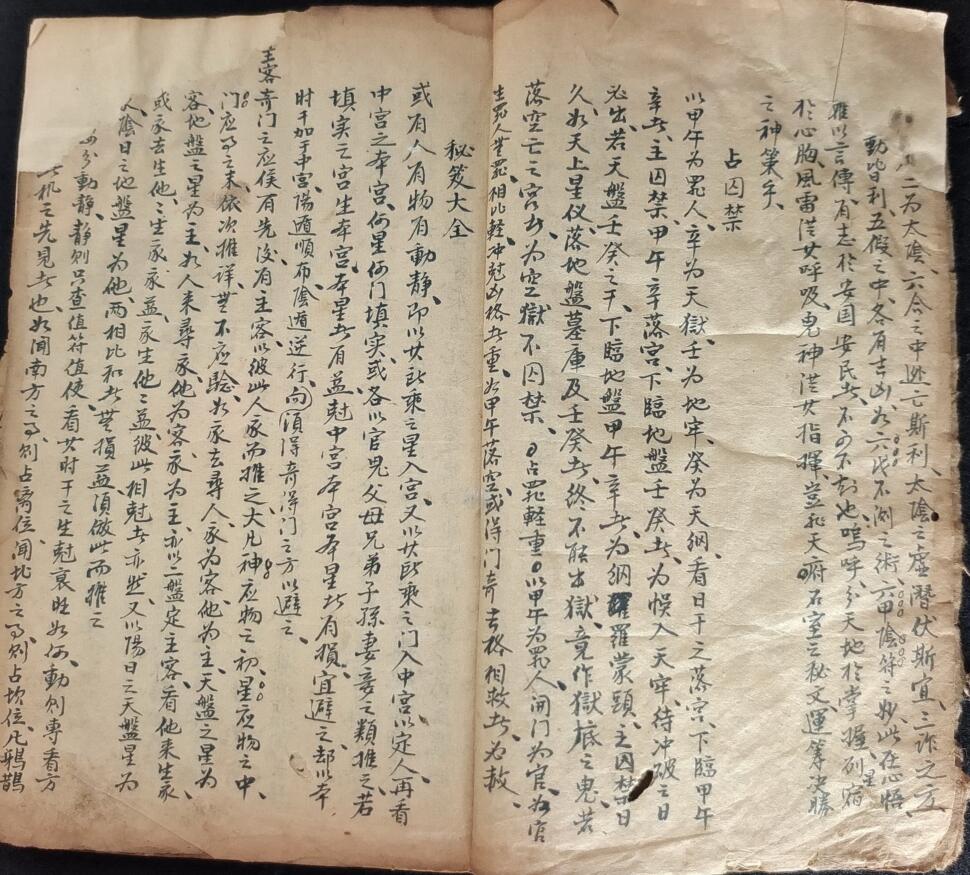 二为太陰、六合之中逃亡斯利、太陰之虚潜伏斯宜、三詐之方、
動皆利、五假之中、各有吉凶、如六戊不測之術、六甲陰符之妙、此在心悟、
难以言傳、有志於安国安民者、不可不知也、嗚呼、分天地於掌握、列宿
於心胸、風雷從其呼吸、鬼神從其指揮、豈非天府石室之秘文運筹决勝
之神策乎、
占囚禁
以甲午为罪人、辛为天獄、壬为地牢、癸为天網、看日干之落宫、下臨甲午
辛者、主囚禁、甲午辛落宫、下臨地盤壬癸者、为悮入天牢、待冲破之日
必出、若天盤壬癸之干、下臨地盤甲午辛者、为網羅蒙頭、主囚禁日
久、如天上星仪、落地盤墓庫及壬癸者、終不能出獄、竟作獄底之鬼、若
落空亡之宫者、为空獄不囚禁、占罪軽重、以甲午为罪人、開门为官、如官
生罪人無罪、相比軽、冲尅凶格者重、如甲午落空或得门奇吉格相救者、必赦、
秘笈大全
或有人有物有動静、即以其所乘之星入宫、又以其所乘之门入中宫以定人、再看
中宫之本宫、何星何门填实、或各以官鬼父母兄弟子孫妻妾之類推之、若
填实之宫生本宫、本星者有益、尅中宫本宫本星者有損、宜避之、却以本
时干加于中宫、陽遁順布、陰遁逆行、向須得奇得门之方以避之、
主客奇门之应候、有先後、有主客、以彼此人家而推之、大凡神应物之初、星应物之中、
门应事之末、依次推详、無不应驗、如家去尋人、家为客他为主、天盤之星为
客、地盤之星为主、如人来尋家、他为客家为主、亦以二盤定主客、看他来生家
或家去生他、他生家家益、家生他他益、彼此相尅者亦然、又以陽日之天盤星为
人、陰日之地盤星为他、两相比和者無損益、須倣此而推之
如分動静、静則只查值符值使、看其时干之生尅衰旺如何、動則專看方
此机之先見者也、如闻南方之事、則占离位、闻北方之事、則占坎位、凡鴉鵲